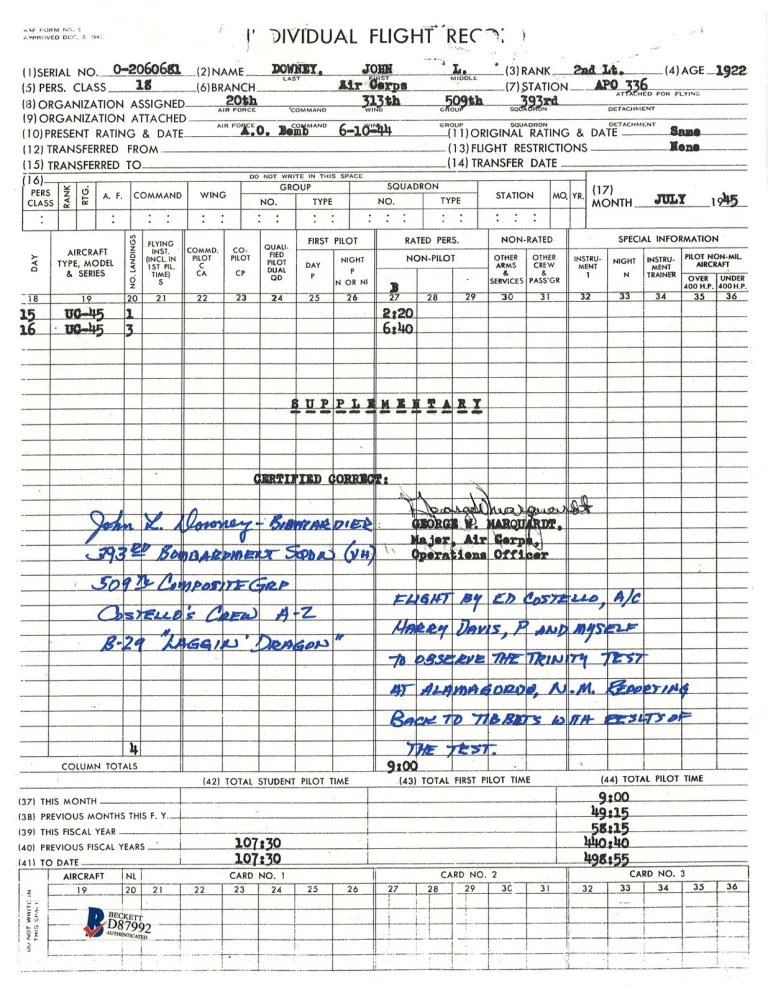 AAF FORM NO. 5
APPROVED DEC. 7, 194
INDIVIDUAL FLIGHT RECORD
(1) SERIAL NO. O-2060681 (2) NAME DOWNEY, JOHN L. (3) RANK 2nd Lt. (4) AGE 1922
LAST FIRST MIDDLE
(5) PERS. CLASS 18 (6) BRANCH Air Corps (7) STATION APO 336
(8) ORGANIZATION ASSIGNED 20th 313th 509th 393rd
ATTACHED FOR FLYING
AIR FORCE COMMAND WING GROUP SQUADRON DETACHMENT
(9) ORGANIZATION ATTACHED
AIR FORCE COMMAND WING GROUP SQUADRON DETACHMENT
(10) PRESENT RATING & DATE A.O. Bomb 6-10-44 (11) ORIGINAL RATING & DATE Same
(12) TRANSFERRED FROM (13) FLIGHT RESTRICTIONS None
(15) TRANSFERRED TO (14) TRANSFER DATE
(16) DO NOT WRITE IN THIS SPACE
PERS CLASS RANK RTG. A. F. COMMAND WING GROUP NO. TYPE SQUADRON NO. TYPE STATION MO. YR. (17) MONTH JULY 1945
DAY AIRCRAFT TYPE, MODEL & SERIES NO. LANDINGS FLYING INST. (INCL. IN 1ST PIL. TIME) S COMMD. PILOT C CA CO-PILOT CP QUALIFIED PILOT DUAL QD FIRST PILOT DAY P NIGHT P N OR NI RATED PERS. NON-PILOT B NON-RATED OTHER ARMS & SERVICES OTHER CREW & PASS'GR SPECIAL INFORMATION INSTRUMENT I NIGHT N INSTRUMENT TRAINER PILOT NON-MIL. AIRCRAFT OVER 400 H.P. UNDER 400 H.P.
18 19 20 21 22 23 24 25 26 27 28 29 30 31 32 33 34 35 36
15 UC-45 1 2:20
16 UC-45 3 6:40
SUPPLEMENTARY
CERTIFIED CORRECT:
George W Marquardt
GEORGE W. MARQUARDT,
Major, Air Corps,
Operations Officer
John L. Downey - BOMBARDIER
393RD BOMBARDMENT SQDN (VH)
509TH COMPOSITE GRP
COSTELLO'S CREW A-2
B-29 "LAGGIN' DRAGON"
FLIGHT BY ED COSTELLO, A/C
HARRY DAVIS, P AND MYSELF
TO OBSERVE THE TRINITY TEST
AT ALAMAGORDO, N.M. REPORTING
BACK TO TIBBETS WITH RESULTS OF
THE TEST.
4
COLUMN TOTALS 9:00
(42) TOTAL STUDENT PILOT TIME (43) TOTAL FIRST PILOT TIME (44) TOTAL PILOT TIME
(37) THIS MONTH 9:00
(38) PREVIOUS MONTHS THIS F. Y. 49:15
(39) THIS FISCAL YEAR 58:15
(40) PREVIOUS FISCAL YEARS 107:30 440:40
(41) TO DATE 107:30 498:55
AIRCRAFT NL CARD NO. 1 CARD NO. 2 CARD NO. 3
19 20 21 22 23 24 25 26 27 28 29 30 31 32 33 34 35 36
DO NOT WRITE IN THIS SPACE
BECKETT
D87992
AUTHENTICATED